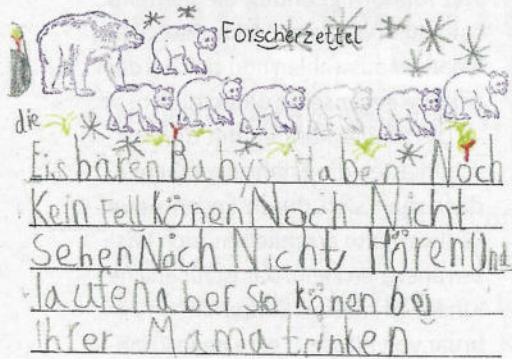 Forscherzettel
die
Eisbären Babys Haben Noch
Kein Fell können Noch Nicht
Sehen Noch Nicht Hören Und
laufen aber sie könen bei
ihrer Mama trinken